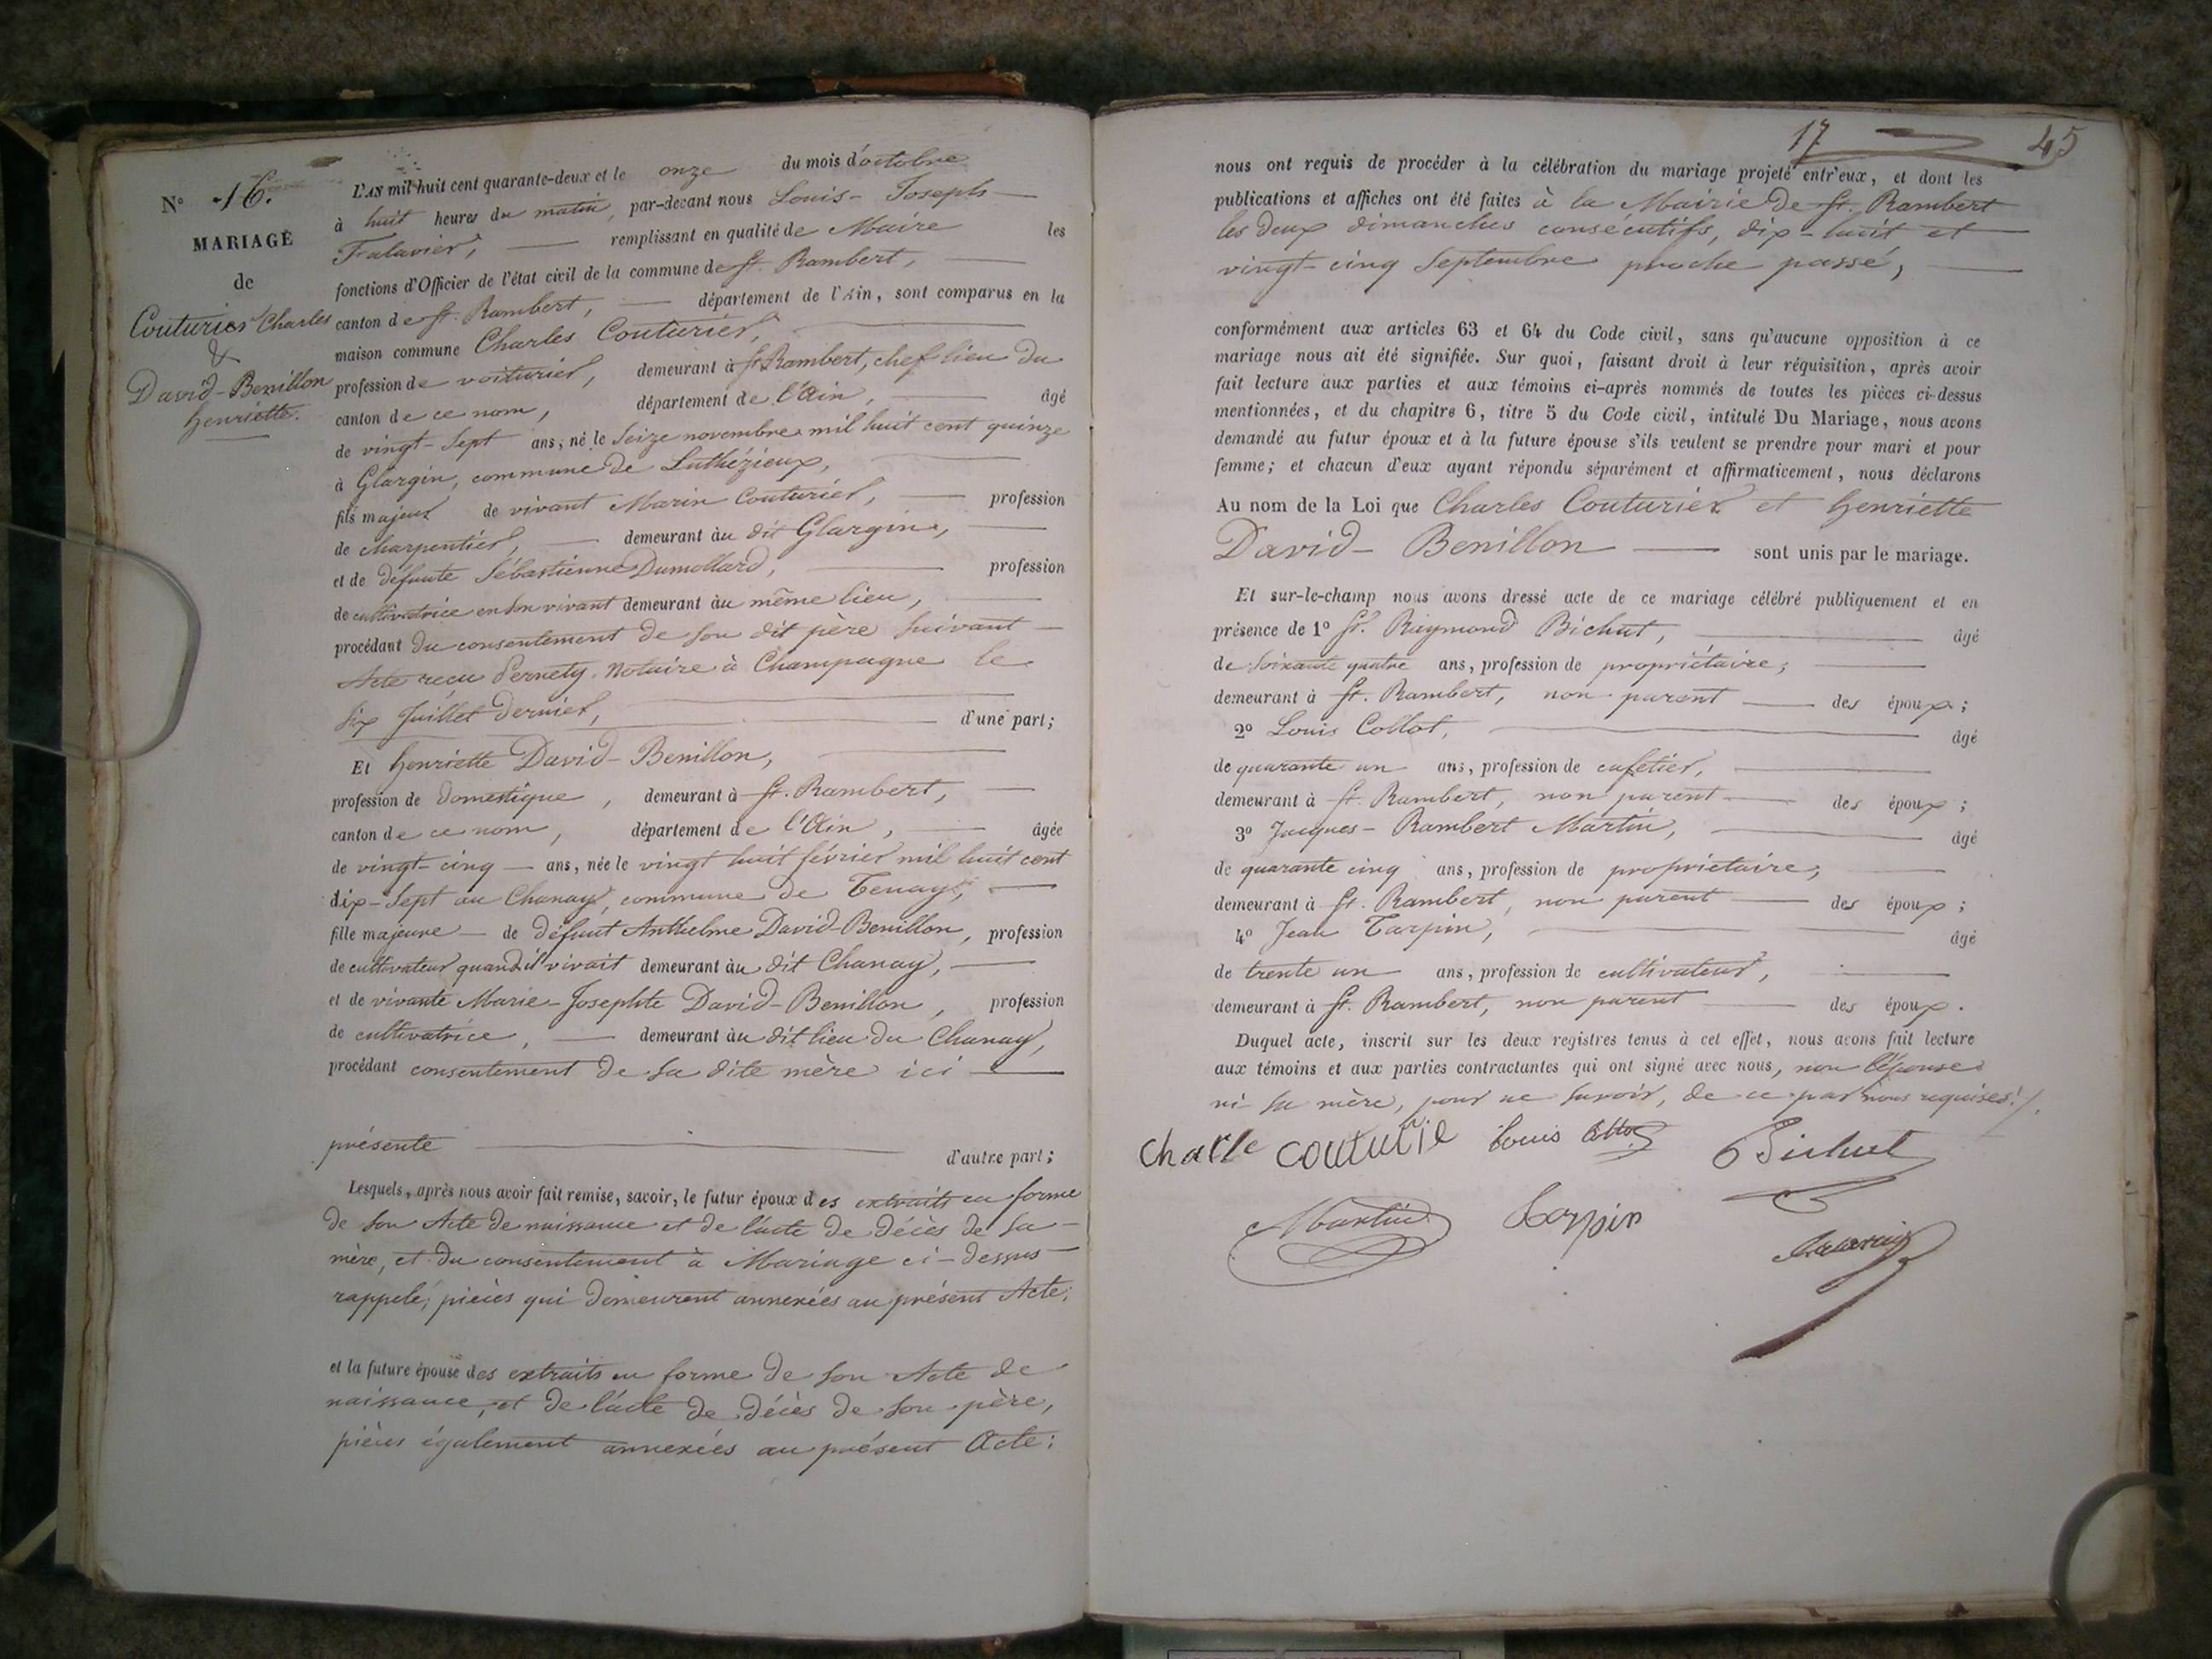 N° 16.
MARIAGE
de
Couturier Charles
&
David-Benillon
henriette.
L'AN mil huit cent quarante-deux et le onze du mois d'octobre
à huit heures du matin, par-devant nous Louis-Joseph
Falavier, remplissant en qualité de Maire les
fonctions d'Officier de l'état civil de la commune de St. Rambert,
canton de St. Rambert, département de l'Ain, sont comparus en la
maison commune Charles Couturier,
profession de voiturier, demeurant à St Rambert, chef lieu du
canton de ce nom, département de l'Ain, âgé
de vingt-sept ans, né le seize novembre mil huit cent quinze
à Glargin, commune de Luthézieux,
fils majeur de vivant Marin Couturier, profession
de charpentier, demeurant àu dit Glargin,
et de défunte Sébastienne Dumollard, profession
de cultivatrice en son vivant demeurant àu même lieu,
procédant du consentement de son dit père suivant
Acte reçu Pernety, Notaire à Champagne le
six Juillet dernier, d'une part;
Et henriette David-Benillon,
profession de domestique, demeurant à St. Rambert,
canton de ce nom, département de l'Ain, âgée
de vingt-cinq ans, née le vingt huit février mil huit cent
dix-sept au Chanay, commune de Tenay,
fille majeure de défunt Anthelme David-Benillon, profession
de cultivateur quand il vivait demeurant àu dit Chanay,
et de vivante Marie-Josephte David-Benillon, profession
de cultivatrice, demeurant àu dit lieu du Chanay,
procédant consentement de sa dite mère ici
présente d'autre part;
Lesquels, après nous avoir fait remise, savoir, le futur époux des extraits en forme
de son Acte de naissance et de l'acte de décès de sa
mère, et du consentement à Mariage ci-dessus
rappelé, pièces qui demeurent annexées au présent Acte;
et la future épouse des extraits en forme de son Acte de
naissance, et de l'acte de décès de son père,
pièces également annexées au présent Acte;
17 45
nous ont requis de procéder à la célébration du mariage projeté entr'eux, et dont les
publications et affiches ont été faites à la Mairie de St. Rambert
les deux dimanches consécutifs, dix-huit et
vingt-cinq Septembre proche passé,
conformément aux articles 63 et 64 du Code civil, sans qu'aucune opposition à ce
mariage nous ait été signifiée. Sur quoi, faisant droit à leur réquisition, après avoir
fait lecture aux parties et aux témoins ci-après nommés de toutes les pièces ci-dessus
mentionnées, et du chapitre 6, titre 5 du Code civil, intitulé Du Mariage, nous avons
demandé au futur époux et à la future épouse s'ils veulent se prendre pour mari et pour
femme; et chacun d'eux ayant répondu séparément et affirmativement, nous déclarons
Au nom de la Loi que Charles Couturier et henriette
David-Benillon sont unis par le mariage.
Et sur-le-champ nous avons dressé acte de ce mariage célébré publiquement et en
présence de 1° Sr. Raymond Bichut, âgé
de soixante quatre ans, profession de propriétaire,
demeurant à St. Rambert, non parent des époux;
2° Louis Collot, âgé
de quarante un ans, profession de cafetier,
demeurant à St. Rambert, non parent des époux;
3° Jacques-Rambert Martin, âgé
de quarante cinq ans, profession de propriétaire,
demeurant à St. Rambert, non parent des époux;
4° Jean Tarpin, âgé
de trente un ans, profession de cultivateur,
demeurant à St. Rambert, non parent des époux.
Duquel acte, inscrit sur les deux registres tenus à cet effet, nous avons fait lecture
aux témoins et aux parties contractantes qui ont signé avec nous, non l'épouse
ni sa mère, pour ne savoir, de ce par nous requises./.
Charle couturie Louis Bichut
Martin Tarpin